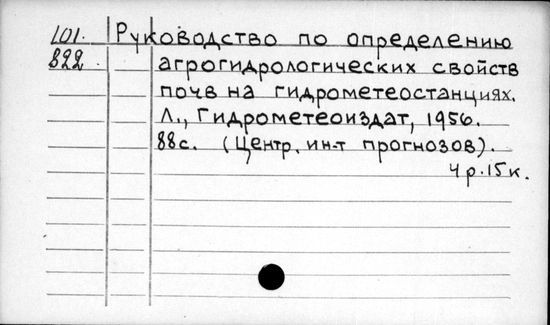 101. Руководство по определению
822. агрогидрологических свойств
почв на гидрометеостанциях.
Л., Гидрометеоиздат, 1956.
88с. (Центр. ин-т прогнозов).
4р.15к.